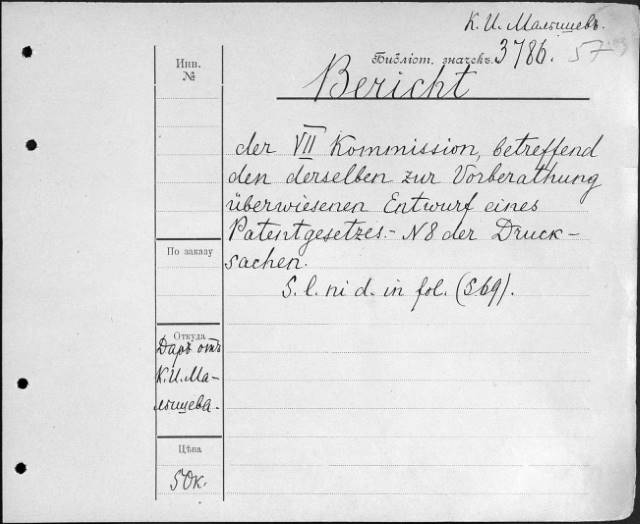 К. И. Малышевъ.
Инв.
№
Библіот. значекъ. 3786. 57
Bericht
der VII Kommission, betreffend
den derselben zur Vorberathung
überwiesenen Entwurf eines
Patentgesetzes.- N8 der Druck-
sachen.
S. l. ni d. in fol. (S 69).
По заказу
Откуда
Даръ отъ
К. И. Ма-
лышева.
Цѣна
50к.